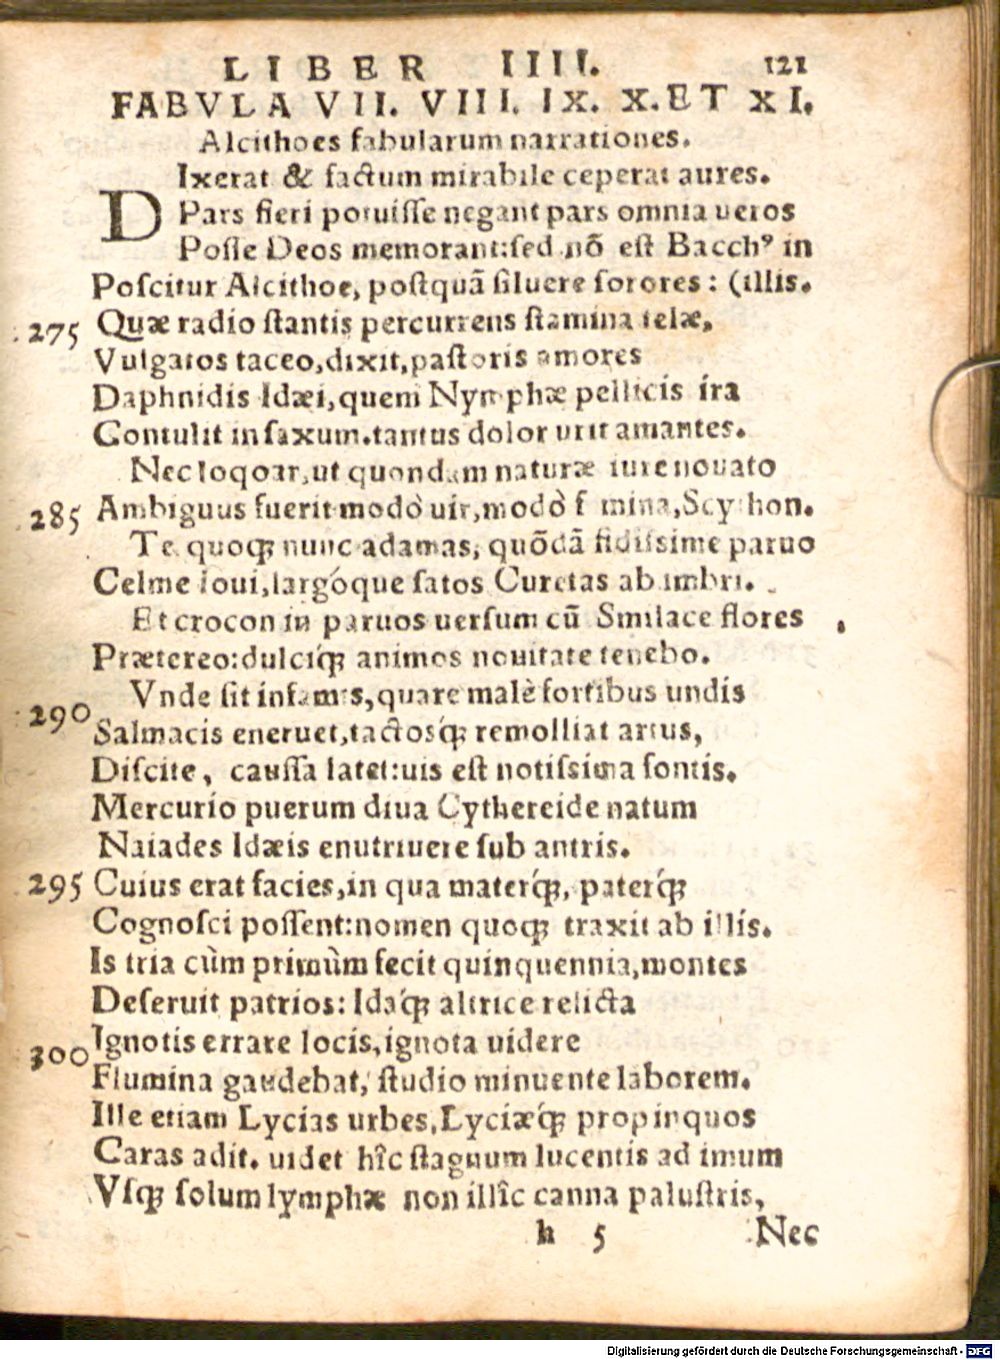 LIBER IIII. 121
FABVLA VII. VIII. IX. X. ET XI.
Alcithoes fabularum narrationes.
DIxerat & factum mirabile ceperat aures.
Pars fieri potuiſſe negant pars omnia ueros
Poſſe Deos memorant:ſed nõ eſt Bacchꝰ in
Poſcitur Alcithoe, poſtquã ſiluere ſorores: (illis.
275 Quæ radio ſtantis percurrens ſtamina telæ,
Vulgatos taceo,dixit,paſtoris amores
Daphnidis Idæi,quem Nymphæ pellicis íra
Contulit in ſaxum.tantus dolor urit amantes.
Nec loqoar,ut quondam naturæ iure nouato
285 Ambiguus fuerit modò uir,modò f mina,Scython.
Te quoqꝫ nunc adamas, quõdã fidiſſime paruo
Celme Ioui,largóque ſatos Curetas ab imbri.
Et crocon in paruos uerſum cũ Smilace flores
Prætereo:dulciq́ꝫ animos nouitate tenebo.
Vnde ſit infamis,quare malè fortibus undis
290 Salmacis eneruet,tactosq́ꝫ remolliat artus,
Diſcite, cauſſa latet:uis eſt notiſſima fontis.
Mercurio puerum diua Cythereide natum
Naiades Idæis enutriuere ſub antris.
295 Cuius erat facies,in qua materq́ꝫ, paterq́ꝫ
Cognoſci poſſent:nomen quoqꝫ traxit ab illis.
Is tria cùm primùm fecit quinquennia,montes
Deſeruit patrios: Idaq́ꝫ altrice relicta
Ignotis errare locis,ignota uidere
300 Flumina gaudebat, ſtudio minuente laborem.
Ille etiam Lycias urbes,Lyciæq́ꝫ propinquos
Caras adit. uidet hîc ſtagnum lucentis ad imum
Vſqꝫ ſolum lymphæ non illîc canna paluſtris,
h 5 Nec
Digitalisierung gefördert durch die Deutsche Forschungsgemeinschaft - DFG